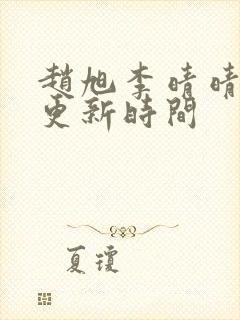 趙旭李晴晴
更新時間
夏瓊